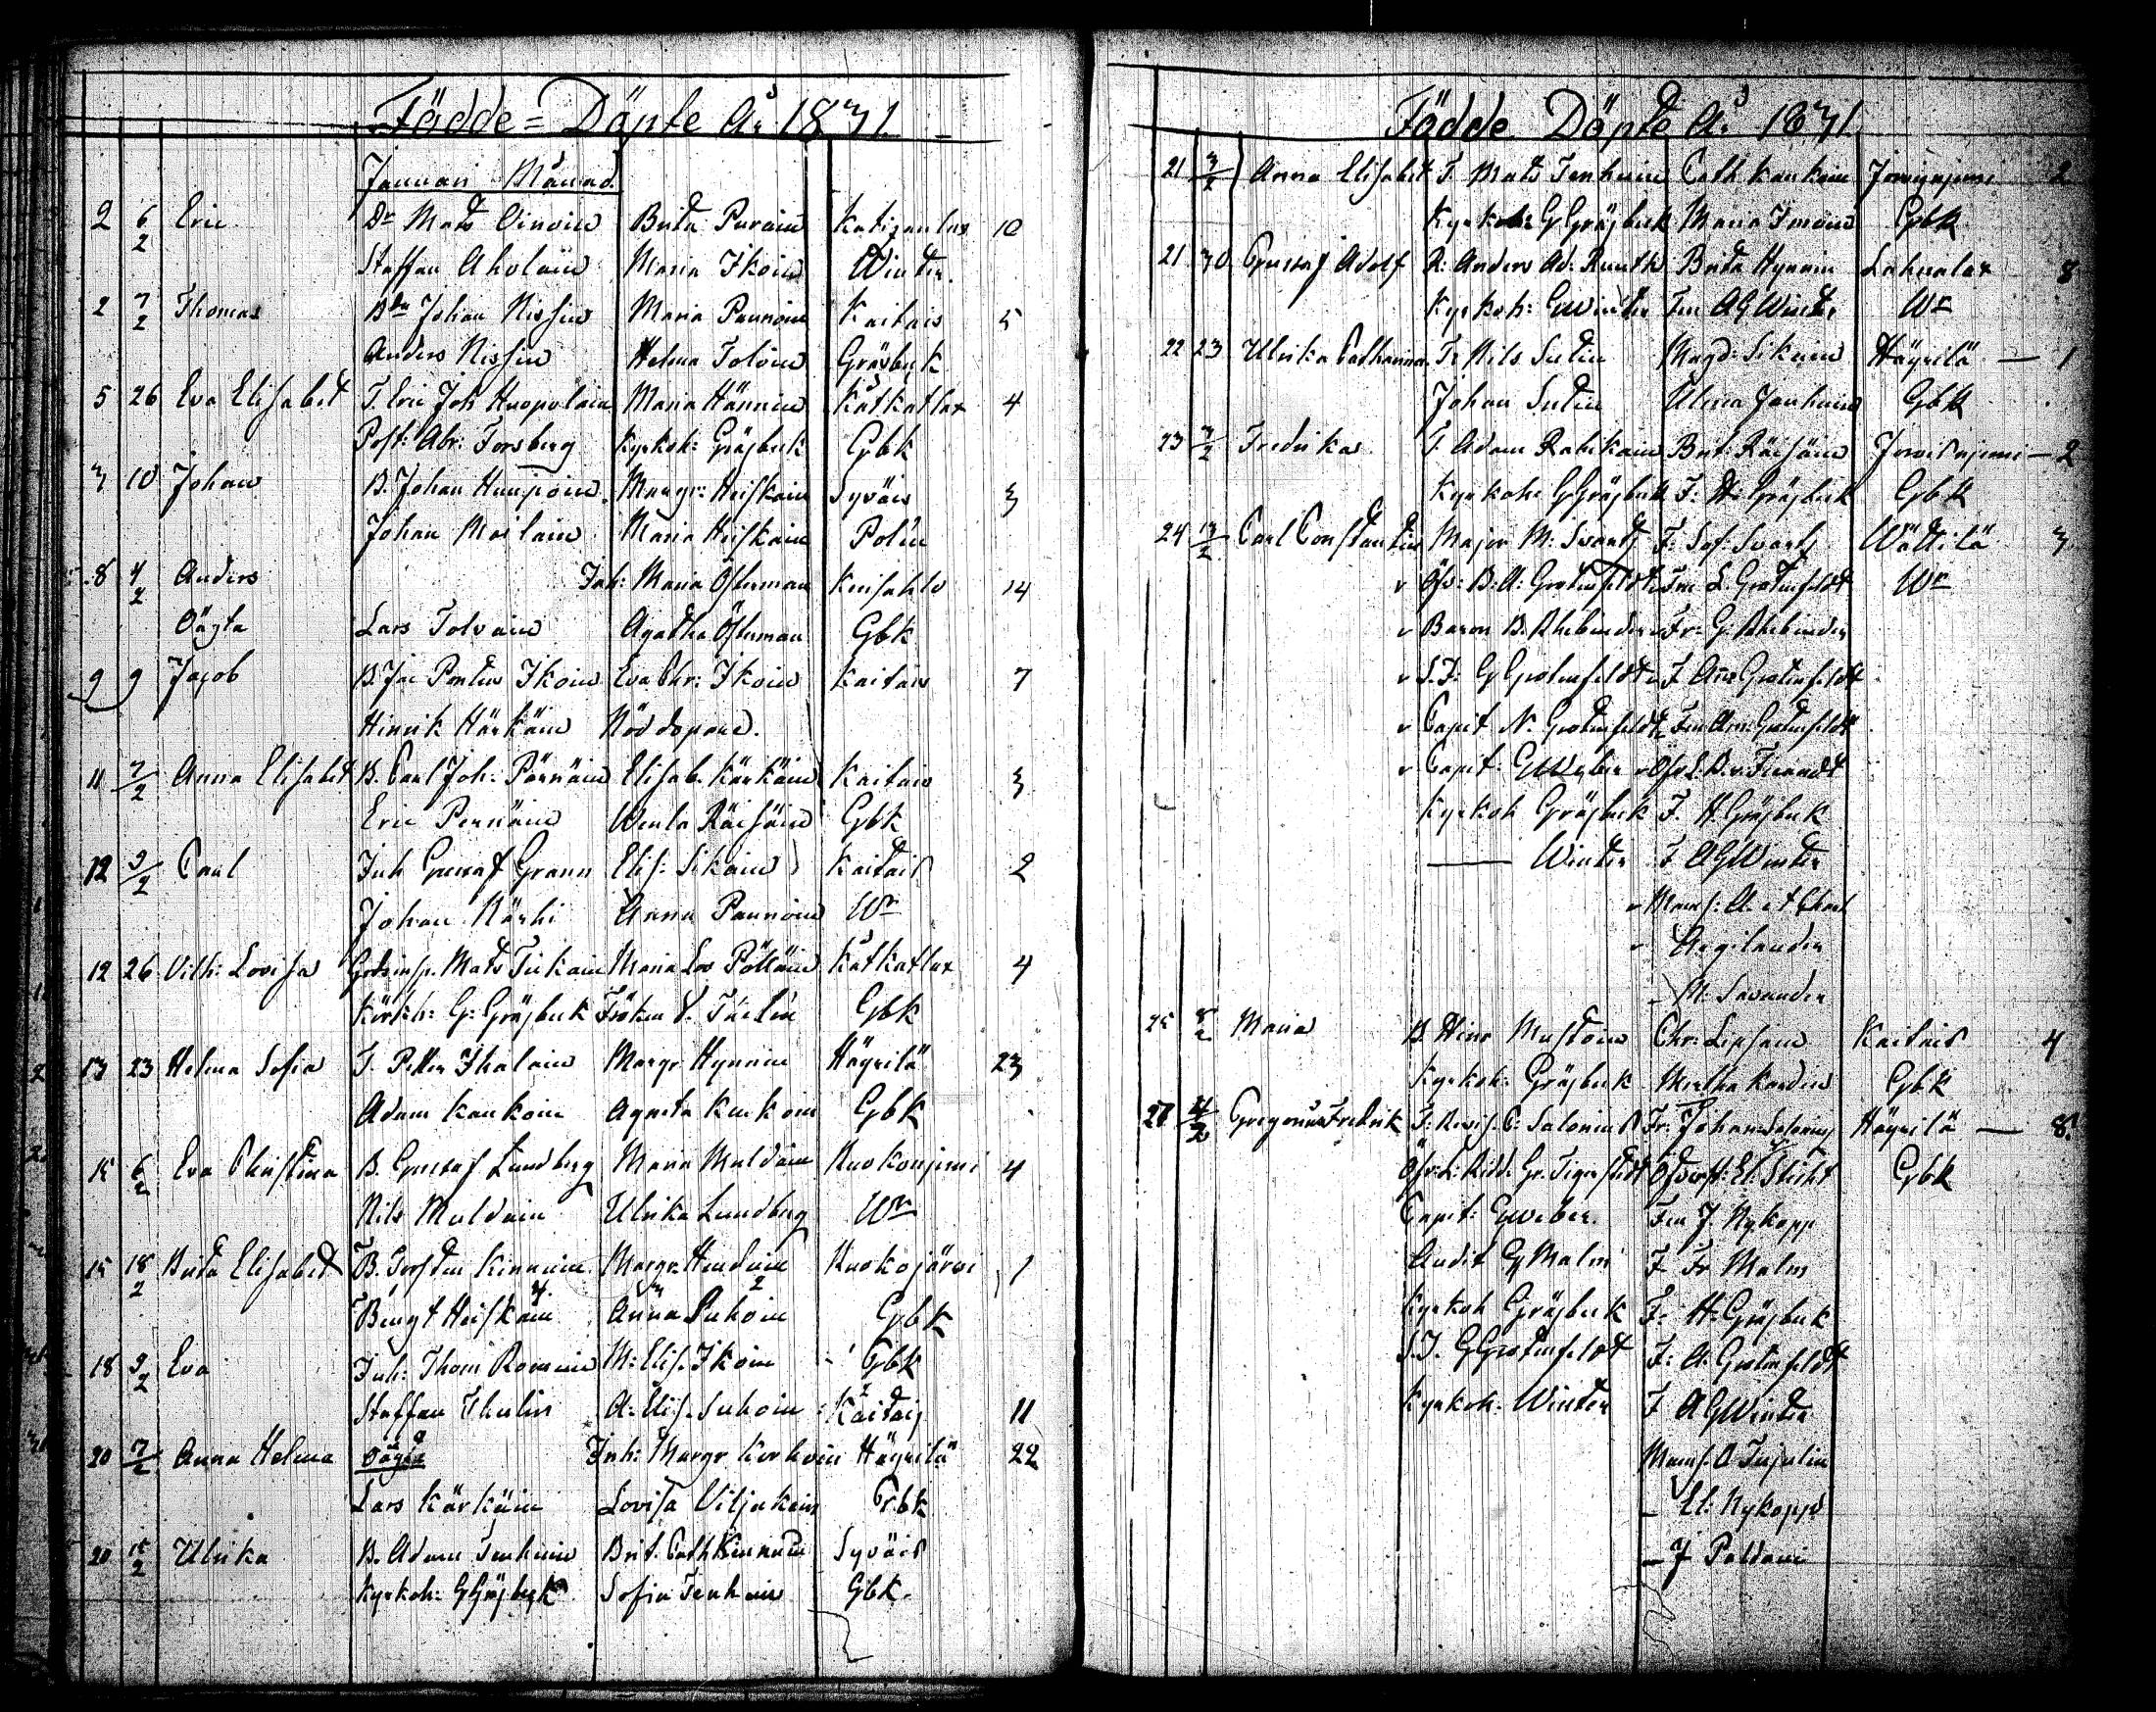 Födde = Döpte År 1831
Januari Månad
2 6/2 Eric Dr Mats Oinoin Brita Purain Katisenlax 10
Staffan Aholain Maria Ikoin Winter
2 7/2 Thomas Johan Nissin Maria Pannoin Kaitais 5
Anders Nissin Helena Tolvain Gräsbeck
5 26 Eva Elisabet T. Eric Joh Huopolain Maria Hännin Kätkatlax 4
Post: Abr: Forsberg Kyrkoh: Gräsbeck Gbk
3 10 Johan B. Johan Huupoin Margr: Heiskain Syväis 3
Johan Moilain Maria Heiskain Polin
8 4/2 Anders Inh: Maria Österman Keisalo 14
Oägta Lars Tolvain Agatha Österman Gbk
9 9 Jacob B. Joh Pontus Ikoin Eva Chr: Ikoin Kaitais 7
Hinrik Härkäin Nöddopare.
11 7/2 Anna Elisabet B. Carl Joh: Pärnäin Elisab. Kärkäin Kaitais 3
Eric Pernäin Wenla Räisäin Gbk
12 9/2 Carl Inh Gustaf Grann Elis: Sikain Kaitais 2
Johan Kärhi Anna Pannoin Wr
12 26 Vilh: Lovisa Mats Tiukain Maria Lov Pölläin Kätkatlax 4
Kyrkh: G: Gräsbeck Fröken V. Thelin Gbk
13 23 Helena Sofia T. Petter Ihalain Margr Hynnin Häyrilä 23
Adam Kaukoin Agneta Kaukoin Gbk
15 6/2 Eva Christina B. Gustaf Lundberg Maria Muldain Ruokonjemi 4
Nils Muldain Ulrika Lundberg Wr
15 18/2 Brita Elisabet B. Torsten Kinnuin Margr. Ruokojärvi 1
Bengt Heiskain Anna Suhoin Gbk
18 9/2 Eva Inh: Thom Romain M: Elis. Ikoin Gbk
Staffan Thulin A: Elis. Suhoin Kaitais 11
20 7/2 Anna Helena oägta Inh: Margr Korhoin Häyrilä 22
Lars Kärkäin Lovisa Viljakain Grbk
20 15/2 Ulrika B. Adam Tenhuin Brit. Cath Kinnuin Syväis
Kyrkoh: G Gräsbeck Sofia Tenhuin Gbk.
Födde Döpte År 1831
21 3/2 Anna Elisabet T. Mats Tenhuin Cath Kaukoin Joroisniemi 2
Kyrkoh: G Gräsbeck Maria Imoin Gbk
21 30 Gustaf Adolf R: Anders Ad: Ruuth Brita Hynnin Lahnalax 8
Kyrkoh: G Winter Fru A G Winter Wr
22 23 Ulrika Catharina T: Nils Sutin Magd: Sikain Häyrilä — 1
Johan Sutin Ulrica Janhuin Gbk
23 3/2 Fredrika T Adam Ratikain Brit: Räisäin Joroisniemi — 2
Kyrkoh: G Gräsbeck F: H: Gräsbeck Gbk
24 13/2 Carl Constantin Major M: Svartz F: Sof: Svartz Wättilä 3
v Öfv: B: A: Grotenfeldt v Fru L. Grotenfeldt Wr
v Baron B. Rhebinder v Fr: G. Rhebinder
v S.J: G Grotenfeldt v F Ann Grotenfeldt
v Capit N. Grotenfeldt v Fru Ann: Grotenfeldt
v Capit: G Weber v Öfv L: B. v. Fieandt
Kyrkoh Gräsbeck F. H Gräsbeck
—— Winter F A G Winter
v Mams: A. et Charl
Argilander
M: Savander
25 8/2 Maria B. Hinr Mustoin Chr: Lipsain Kaitais 4
Kyrkoh: Gräsbeck Martha Kardin Gbk
28 Gregorius Fredrik T: C: Salonius Fr: Johan Salonius Häyrilä — 8
Gbk
Capit: G Weber. Fru J. Nykopp
Audit G Malm F Fr Malm
Kyrkoh Gräsbeck F: H: Gräsbeck
S.J. G Grotenfeldt F: A: Grotenfeldt
Kyrkoh. Winter F A G Winter
Mams. Tujulin
— El: Nykopp
— J Paldani